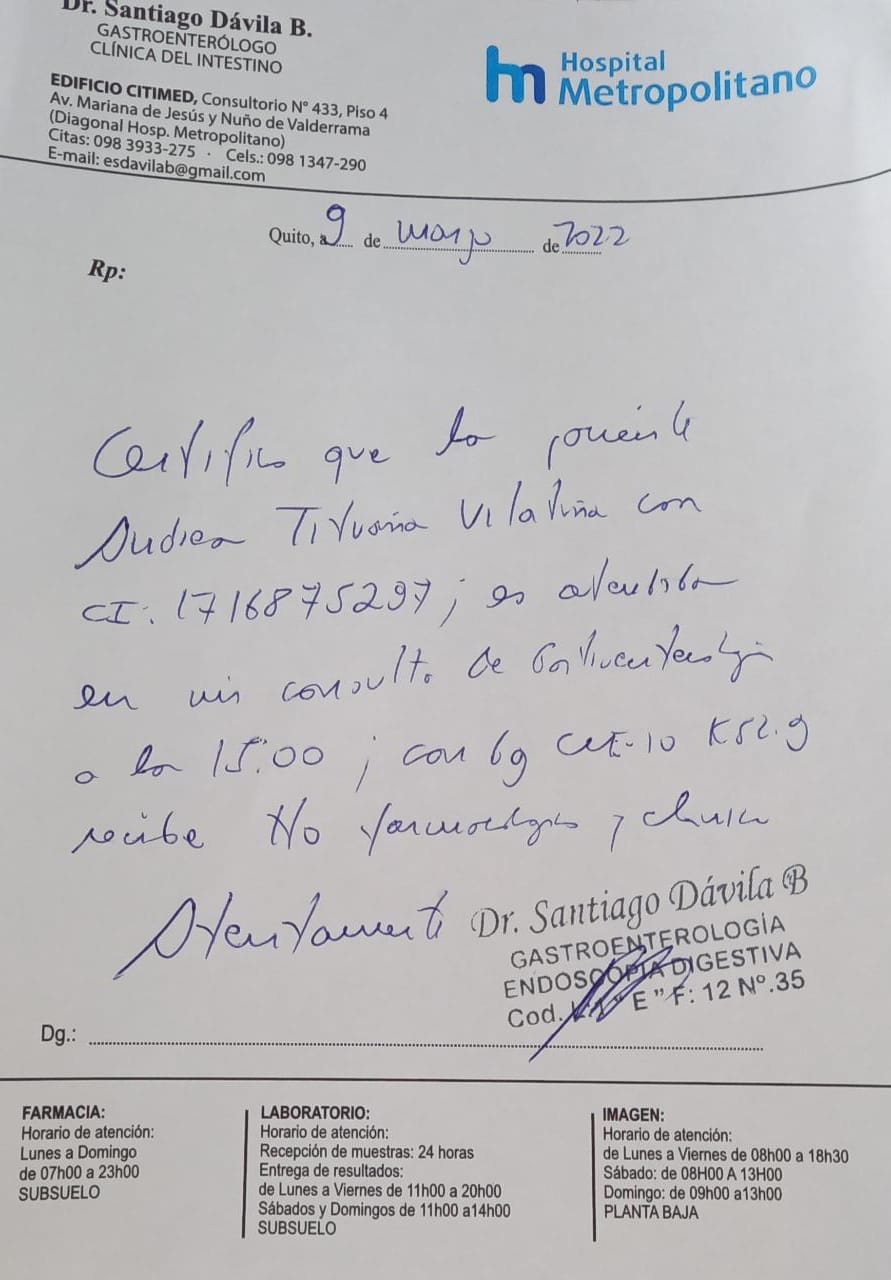 Dr. Santiago Dávila B.
GASTROENTERÓLOGO
CLÍNICA DEL INTESTINO
EDIFICIO CITIMED, Consultorio N° 433, Piso 4
Av. Mariana de Jesús y Nuño de Valderrama
(Diagonal Hosp. Metropolitano)
Citas: 098 3933-275 · Cels.: 098 1347-290
E-mail: esdavilab@gmail.com
hm Hospital
Metropolitano
Quito, a 9 de marzo de 2022
Rp:
Certifico que la paciente
Andrea Tituaña Vilatuña con
CI: 1716875297; es atendida
en mi consulta de Gastroenterología
a las 15:00; con CIE-10 K52.9
recibe farmacológico y
Atentamente
Dr. Santiago Dávila B
GASTROENTEROLOGÍA
ENDOSCOPIA DIGESTIVA
Cod. "E" F: 12 Nº.35
Dg.:
FARMACIA:
Horario de atención:
Lunes a Domingo
de 07h00 a 23h00
SUBSUELO
LABORATORIO:
Horario de atención:
Recepción de muestras: 24 horas
Entrega de resultados:
de Lunes a Viernes de 11h00 a 20h00
Sábados y Domingos de 11h00 a14h00
SUBSUELO
IMAGEN:
Horario de atención:
de Lunes a Viernes de 08h00 a 18h30
Sábado: de 08H00 A 13H00
Domingo: de 09h00 a13h00
PLANTA BAJA